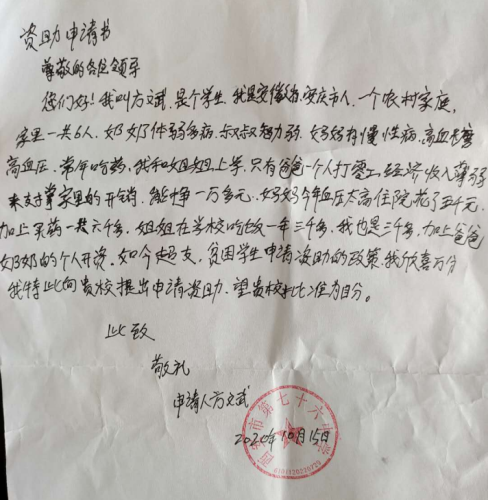 资助申请书
尊敬的各位领导
您们好!我叫方文武,是个学生,我是安徽省,安庆市人,一个农村家庭,
家里一共6人,奶奶体弱多病,叔叔智力弱,妈妈有慢性病,高血糖
高血压,常年吃药,我和姐姐上学,只有爸爸一个人打零工,经济收入薄弱
来支撑家里的开销,能挣一万多元,妈妈今年血压太高住院花了五千元,
加上买药一共六千多,姐姐在学校吃饭一年三千多,我也是三千多,加上爸爸
奶奶的个人开资,如今超支,贫困学生申请资助的政策,我欣喜万分
我特此向贵校提出申请资助,望贵校批准为目分。
此致
敬礼
申请人方文武
2020年10月15日
市第七十六中学